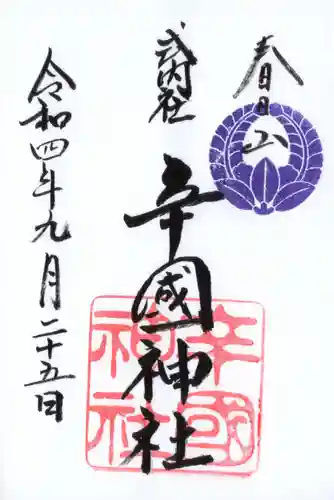 春日山
式内社
辛國神社
辛國
神社
令和四年九月二十五日